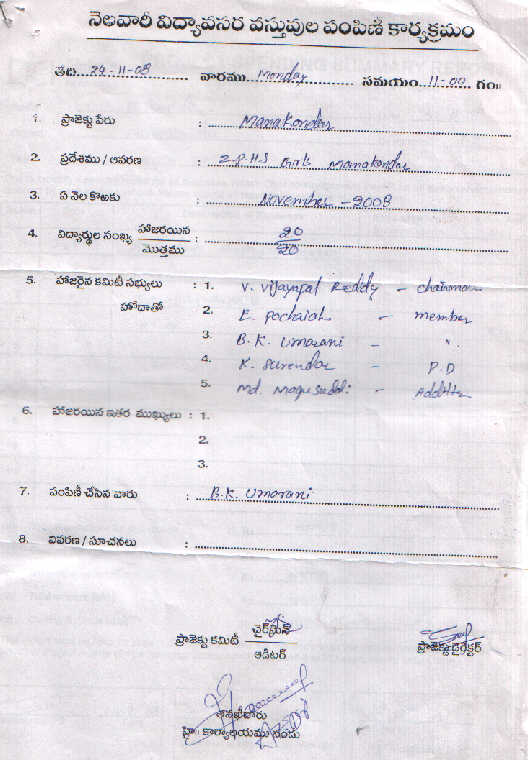 నెలవారీ విద్యావసర వస్తువుల పంపిణీ కార్యక్రమం
తేది 24-11-08 వారము Monday సమయం 11-00 గం॥
1. ప్రాజెక్టు పేరు : Manakondur
2. ప్రదేశము / ఆవరణ : Z.P.H.S Manakondur
3. ఏ నెల కొఱకు : November - 2008
4. విద్యార్థుల సంఖ్య హాజరయిన : 20
మొత్తము 20
5. హాజరైన కమిటీ సభ్యులు : 1. V. Vijayapal Reddy - chairman
హోదాతో 2. E. Pochaiah - member
3. B.K. Umarani - ".
4. K. Surendar - P.D
5. Md.
6. హాజరయిన ఇతర ముఖ్యులు : 1.
2.
3.
7. పంపిణీ చేసిన వారు : B.K. Umarani
8. వివరణ / సూచనలు :
ప్రాజెక్టు కమిటీ చైర్మన్
ఆడిటర్
ప్రాజెక్టు డైరెక్టర్
కార్యాలయము నందు